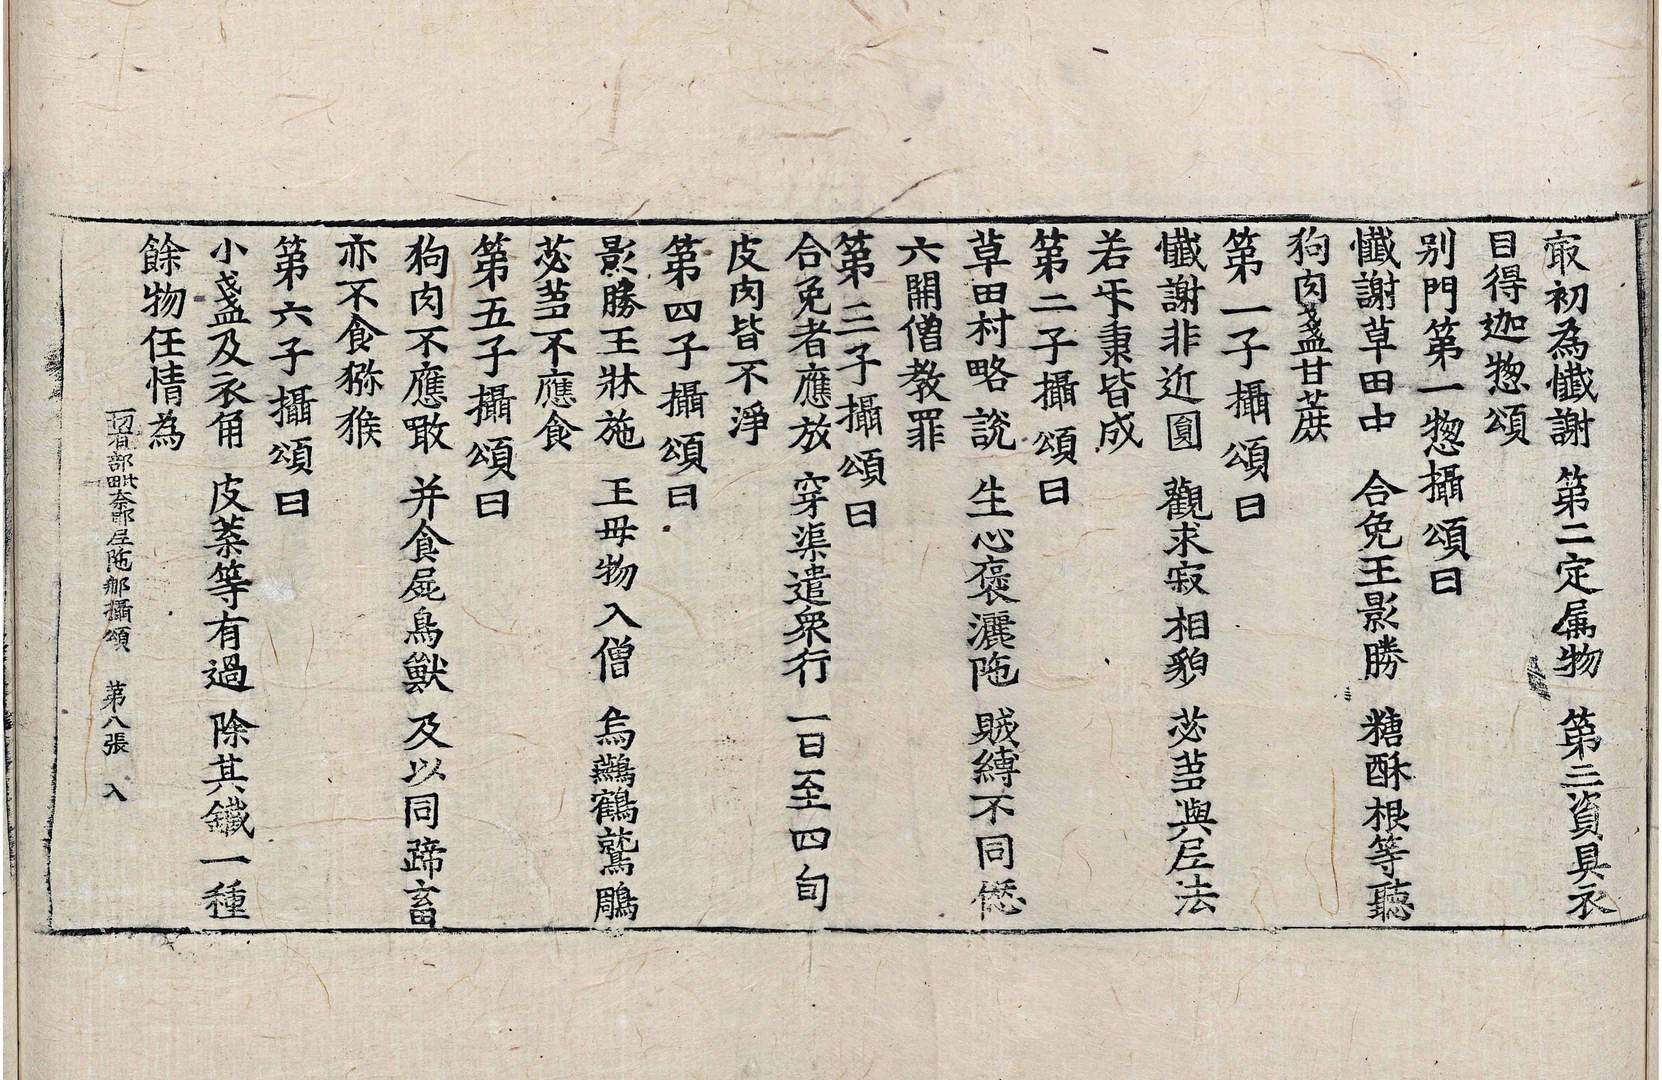 㝡初為懺謝　第二定属物　第三資具衣
目得迦惣頌
别門第一惣攝頌曰
懺謝草田中　合免王影勝　糖酥根等聽
狗肉盞甘蔗
第一子攝頌曰
懺謝非近圎　觀求寂相貌　苾芻與尼法
若不秉皆成
第二子攝頌曰
草田村略說　生心褒灑陁　賊縛不同愆
六開僧教罪
第三子攝頌曰
合免者應放　穿渠遣衆行　一日至四旬
皮肉皆不淨
第四子攝頌曰
影勝王牀施　王母物入僧　烏鷀鶴鷲鵰
苾芻不應食
第五子攝頌曰
狗肉不應噉　并食屍鳥獸　及以同蹄畜
亦不食獼猴
第六子攝頌曰
小盞及衣角　皮葉等有過　除其鐵一種
餘物任情為
有部毗奈耶尼陁那攝頌　第八張　入